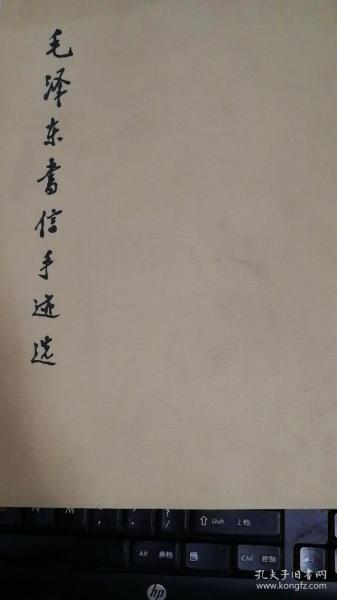 毛泽东书信手迹选
N M < , > . ? / ⇧ Shift 上档
Alt 换档 Ctrl 控制
hp
孔夫子旧书网
www.kongfz.com